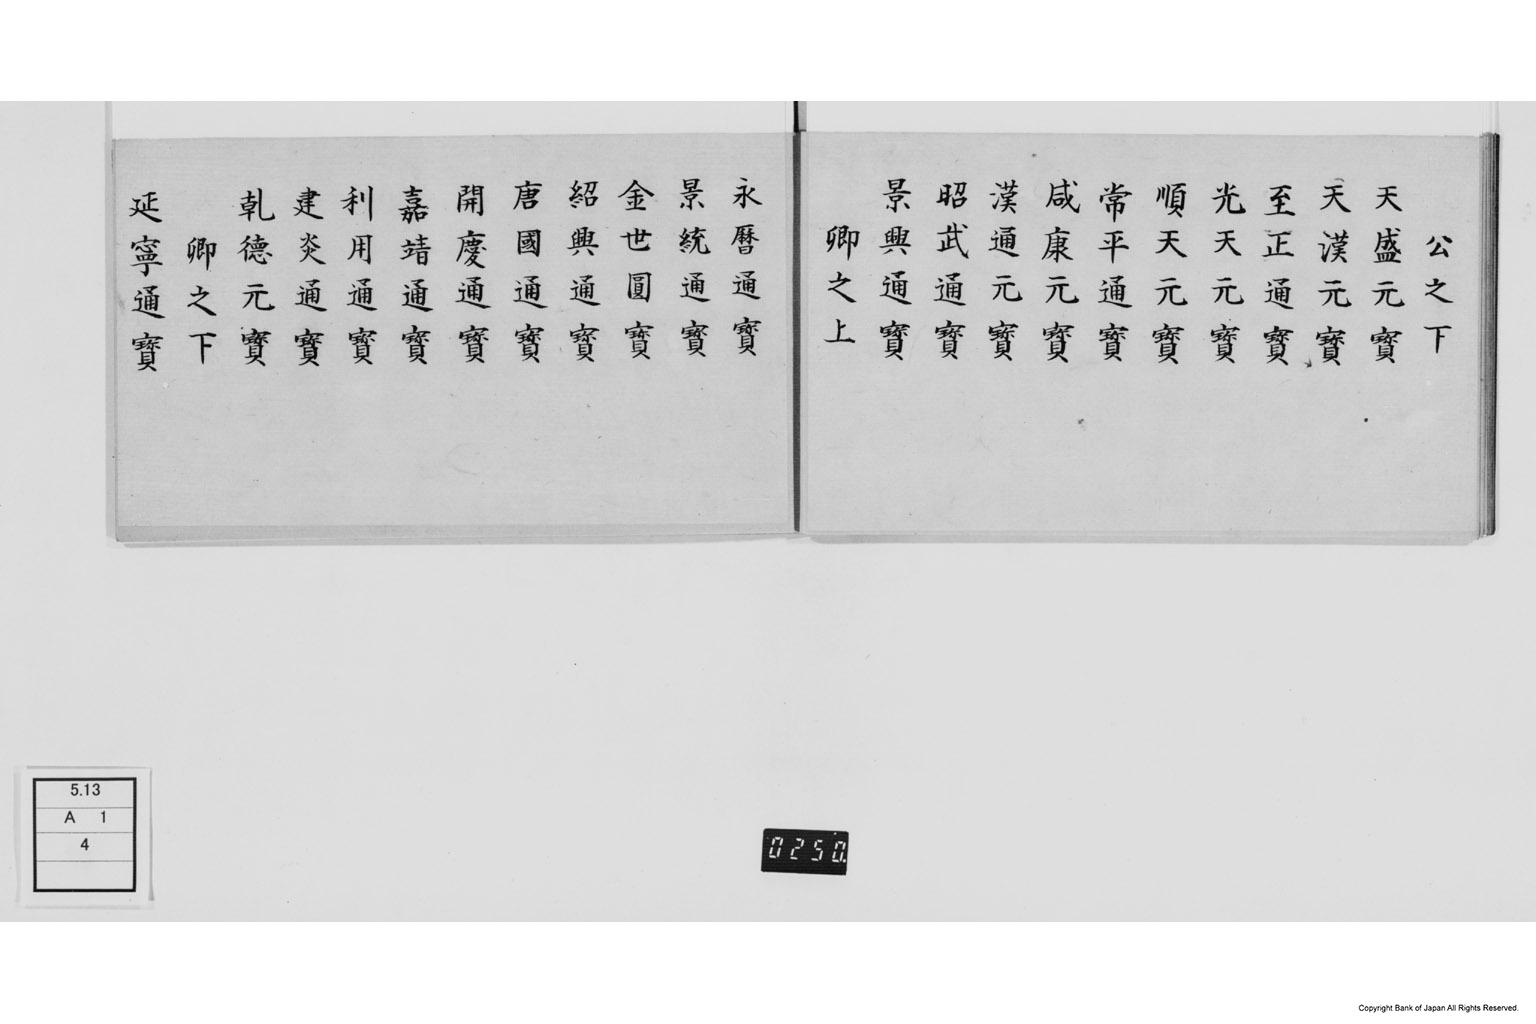 公之下
天盛元寳
天漢元寳
至正通寳
光天元寳
順天元寳
常平通寳
咸康元寳
漢通元寳
昭武通寳
景興通寳
卿之上
永曆通寳
景統通寳
金世圓寳
紹興通寳
唐國通寳
開慶通寳
嘉靖通寳
利用通寳
建炎通寳
乹德元寳
卿之下
延寧通寳
5.13
A 1
4
0250.
Copyright Bank of Japan All Rights Reserved.